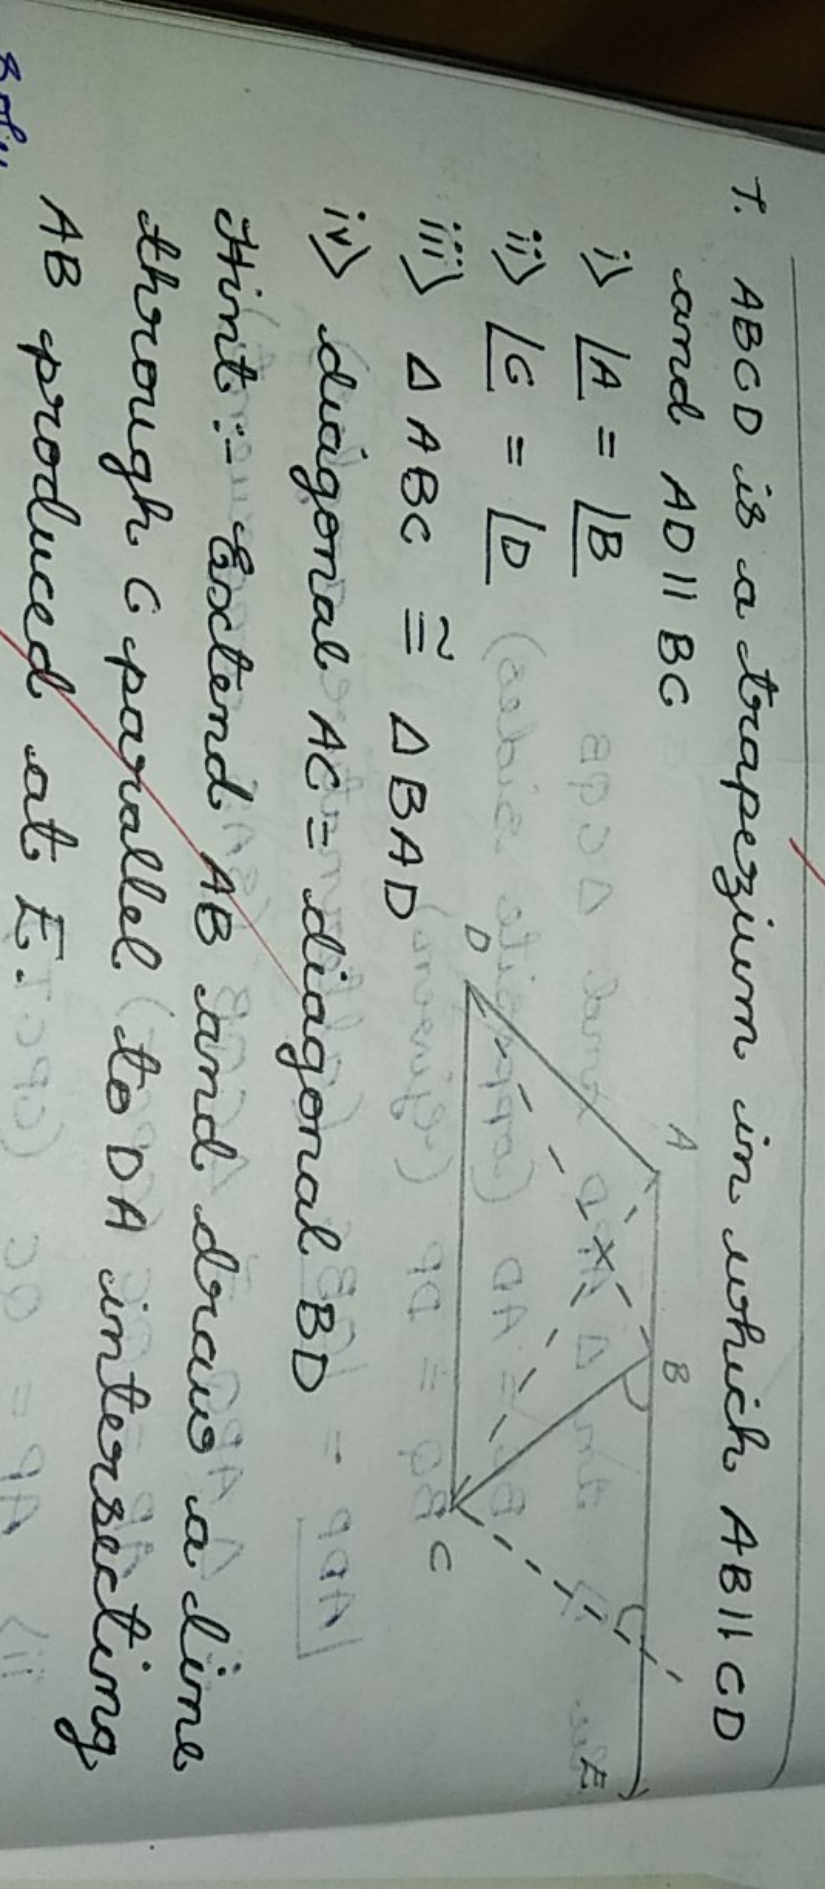 7. ABCD is a trapezium in which AB||CD
and AD||BC
i) ∠A = ∠B
ii) ∠C = ∠D
iii) Δ ABC ≅ Δ BAD
iv) diagonal AC = diagonal BD
Hint :- Extend AB and draw a line
through C parallel to DA intersecting
AB produced at E.
A
B
D
C
E
Soln